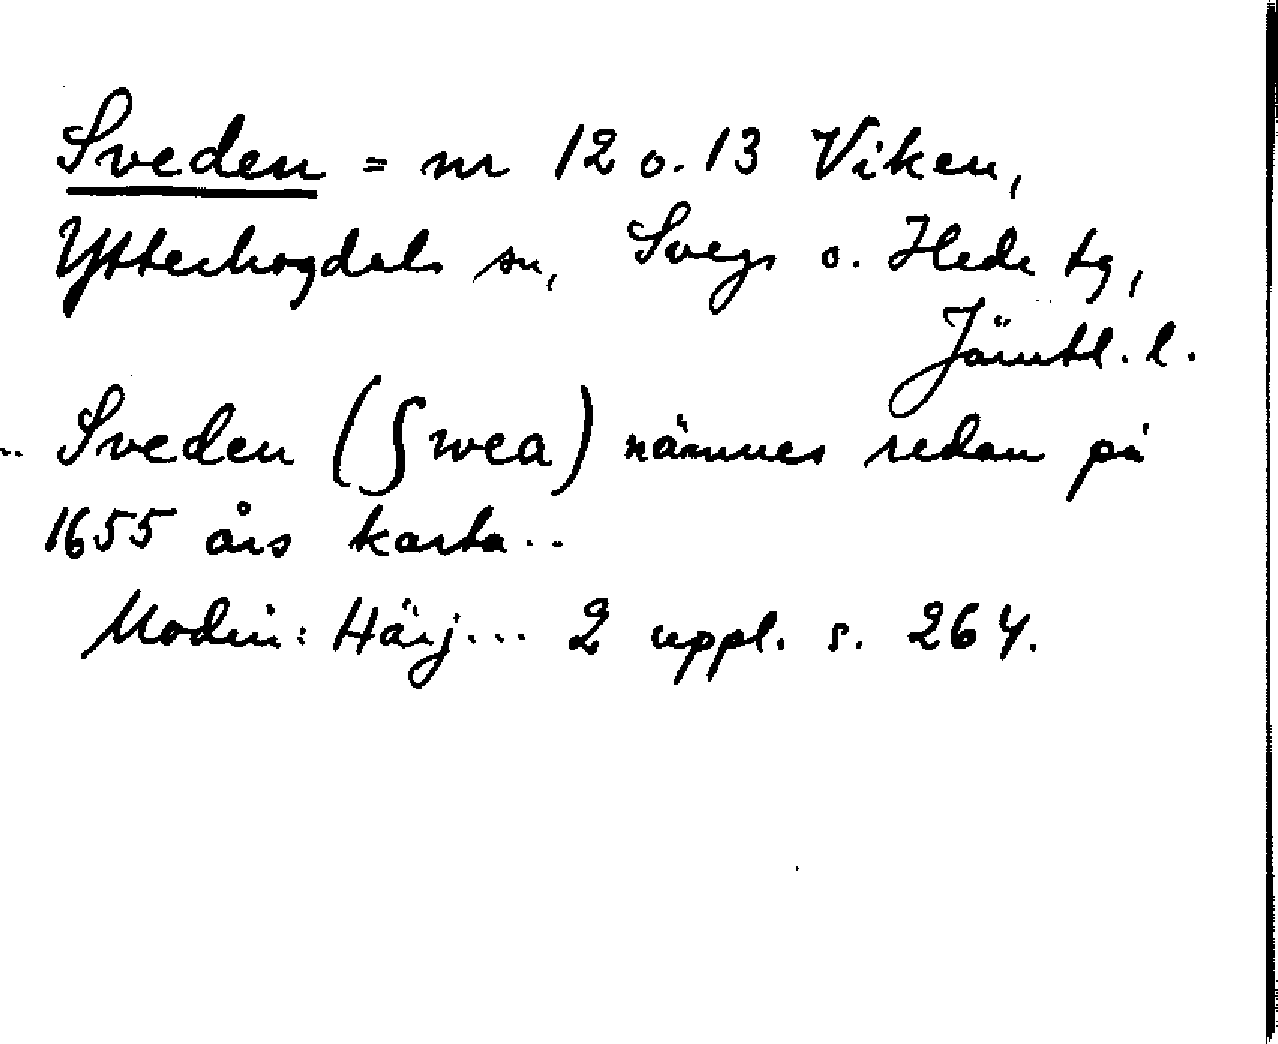 Sveden = nr 12 o. 13 Viken,
Ytterhogdals sn, Svegs o. Hede tg,
Jämtl. l.
.. Sveden (Swea) nämnes redan på
1655 års karta ..
Modin: Härj... 2 uppl. s. 264.